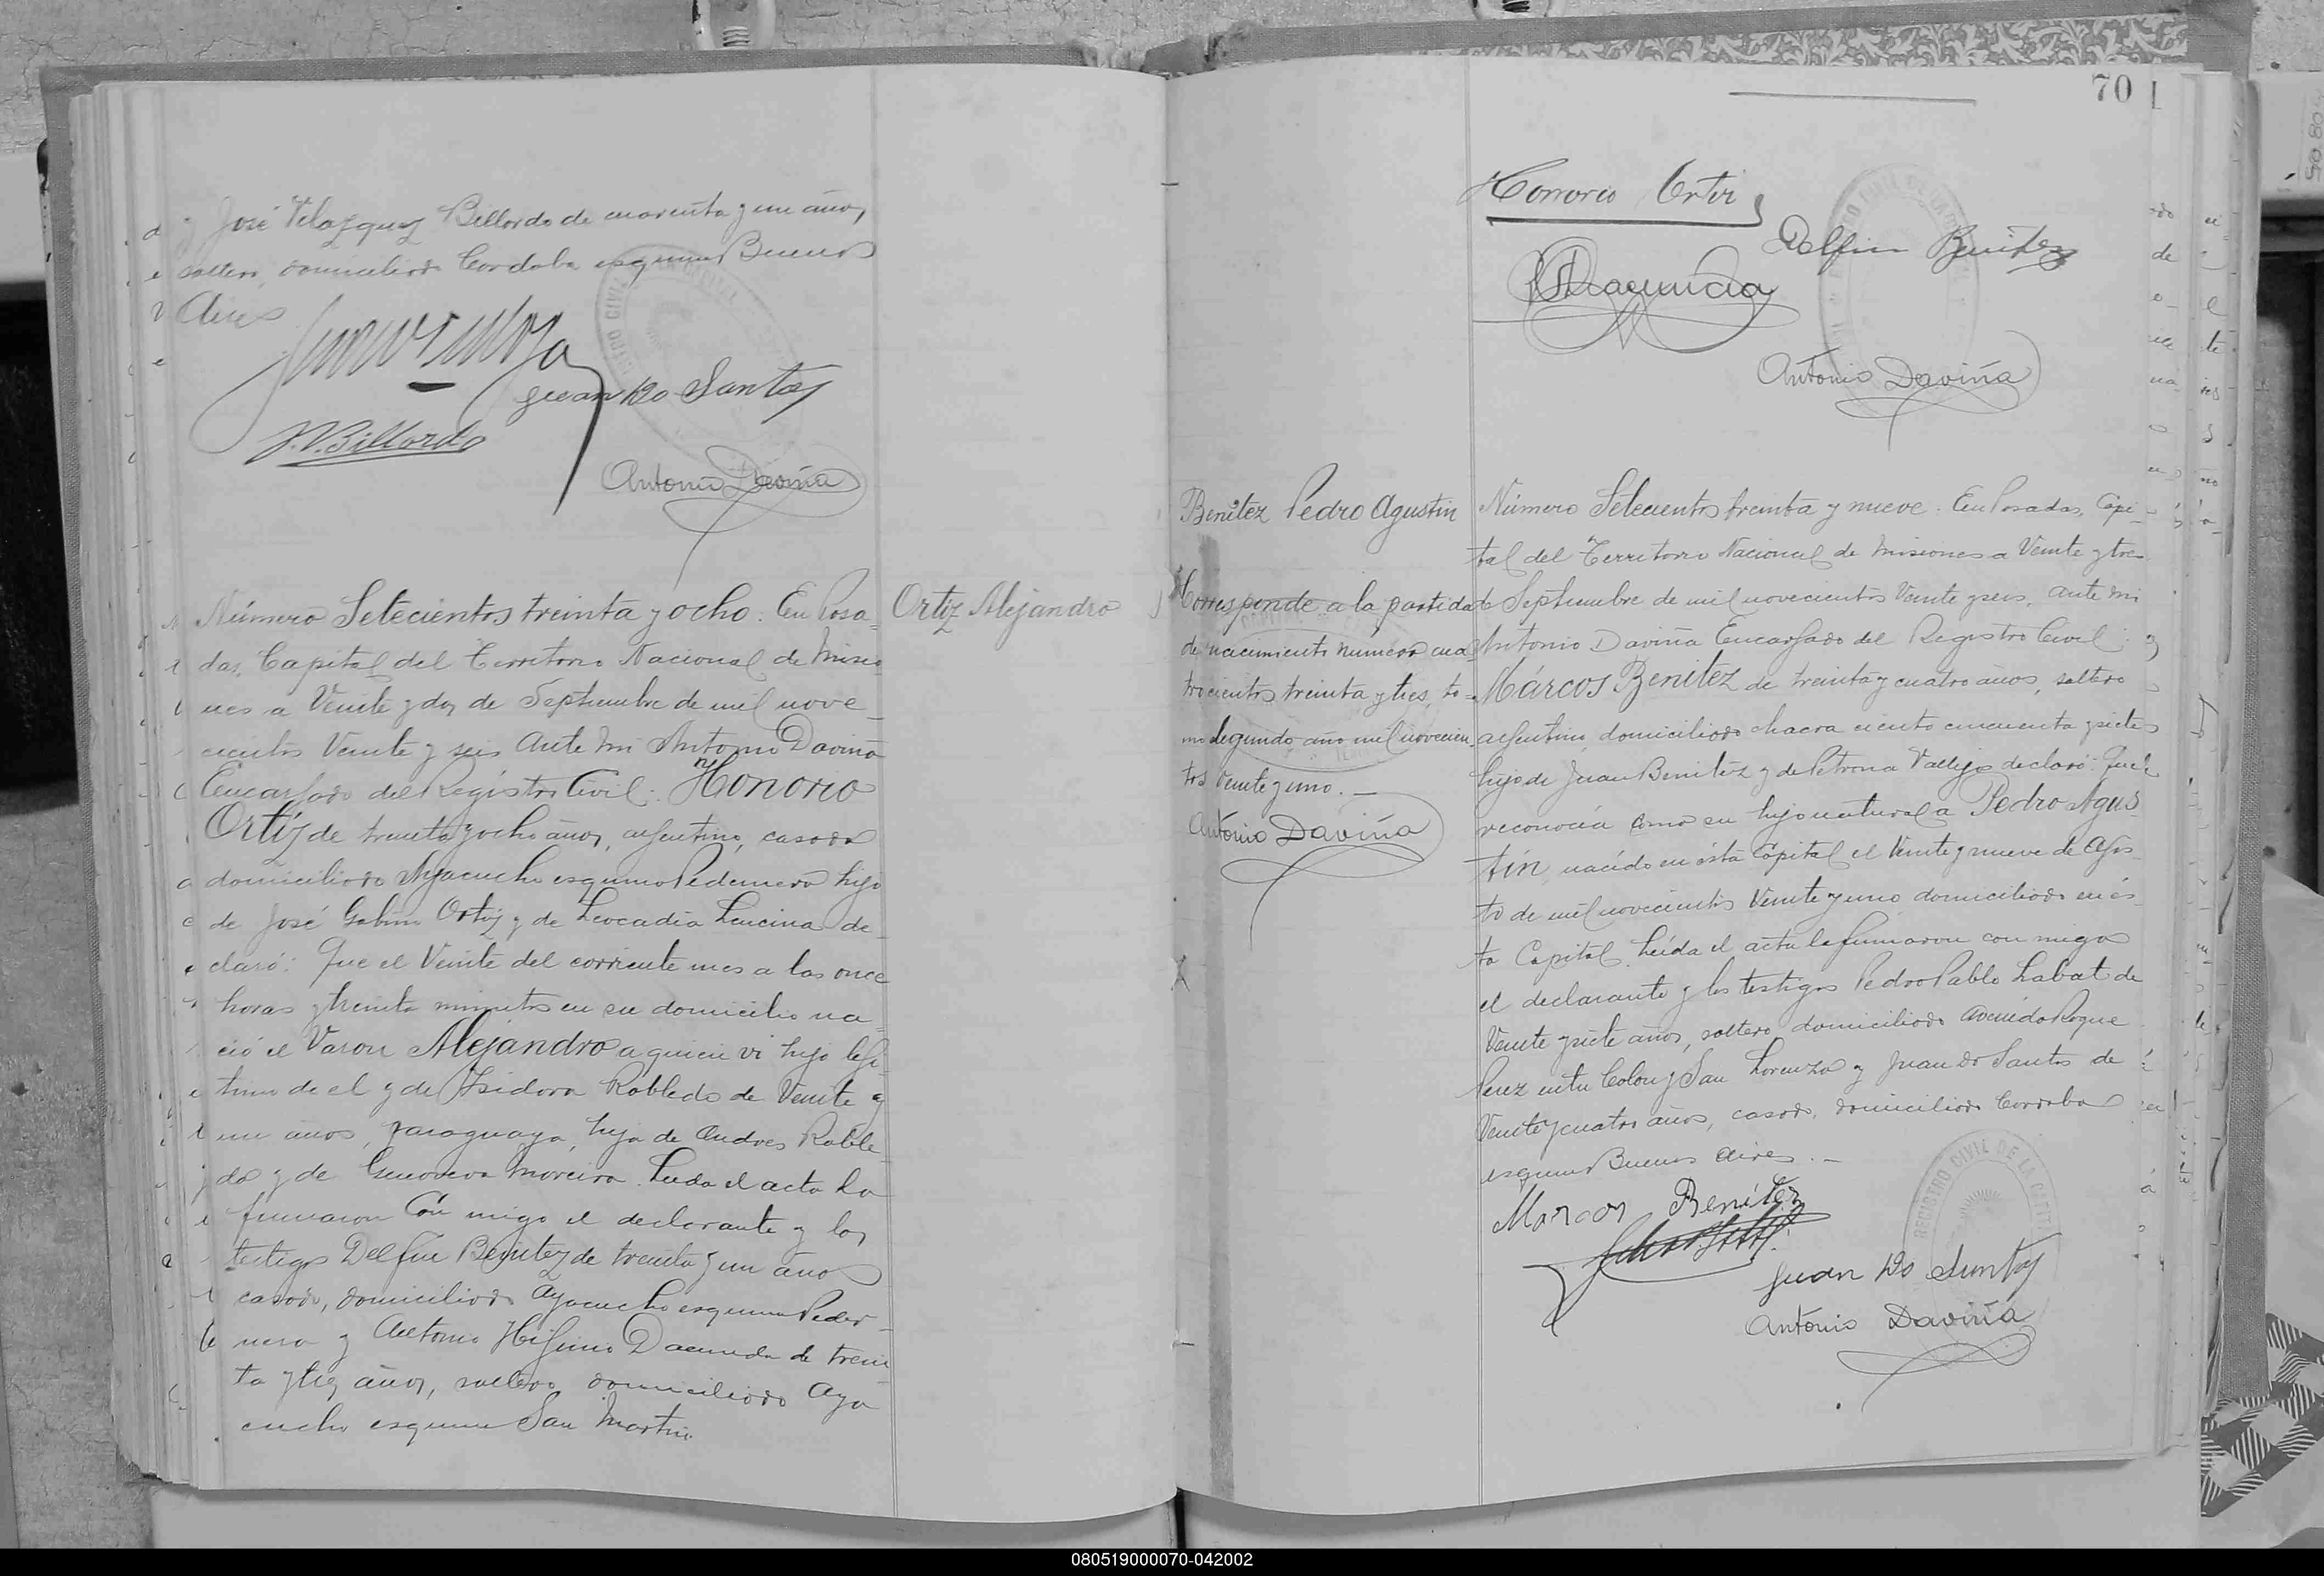 y José Velazquez Billordo de cuarenta y un años,
soltero, domiciliado Cordoba esquina Buenos
Aires
Juan Do Santos
J.V. Billordo
Antonio Daviña
Número Setecientos treinta y ocho. En Posa-
das, Capital del Territorio Nacional de Misio-
nes a Veinte y dos de Septiembre de mil nove-
cientos Veinte y seis Ante mi Antonio Daviña
Encargado del Registro Civil: Honorio
Ortíz de treinta y ocho años, argentino, casado
domiciliado Ayacucho esquina Pedernera hijo
de José Gabino Ortiz y de Leocadia Lencina de-
claró: Que el Veinte del corriente mes a las once
horas y treinta minutos en su domicilio na-
ció el Varon Alejandro a quien vi hijo legi-
timo de el y de Isidora Robledo de Veinte y
un años, paraguaya, hija de Andres Roble-
do y de Genoveva Moreira. Leida el acta la
firmaron con migo el declarante y los
testigos Delfin Benitez de treinta y un años
casado, domiciliado Ayacucho esquina Peder-
nera y Antonio Higinio Dacunda de trein
ta y tres años, soltero domiciliado Aya
cucho esquina San Martin.
Ortiz Alejandro
70
Honorio Ortiz
Delfin Benitez
Dacunda
Antonio Daviña
Benitez Pedro Agustin
Corresponde a la partida
de nacimiento número cua-
trocientos treinta y tres, to-
mo segundo, año mil novecien-
tos veinte y uno.—
Antonio Daviña
Número Setecientos treinta y nueve. En Posadas, Capi-
tal del Territorio Nacional de Misiones a Veinte y tres
de Septiembre de mil novecientos Veinte y seis, ante mi
Antonio Daviña Encargado del Registro Civil:
Márcos Benitez de treinta y cuatro años, soltero
argentino, domiciliado chacra ciento cincuenta y siete
hijo de Juan Benitez y de Petrona Vallejos declaró: Que
reconocia como su hijo natural a Pedro Agus-
tín, nacido en ésta Capital el Veinte y nueve de Agos-
to de mil novecientos Veinte y uno domiciliado en és-
ta Capital. Leída el acta la firmaron con migo
el declarante y los testigos Pedro Pablo Labat de
Veinte y siete años, soltero domiciliado avenida Roque
Perez entre Colon y San Lorenzo y Juan Do Santos de
Veinte y cuatro años, casado, domiciliado Cordoba
esquina Buenos Aires.—
Marcos Benítez
Juan Do Santos
Antonio Daviña
REGISTRO CIVIL DE LA CAPITAL
080519000070-042002